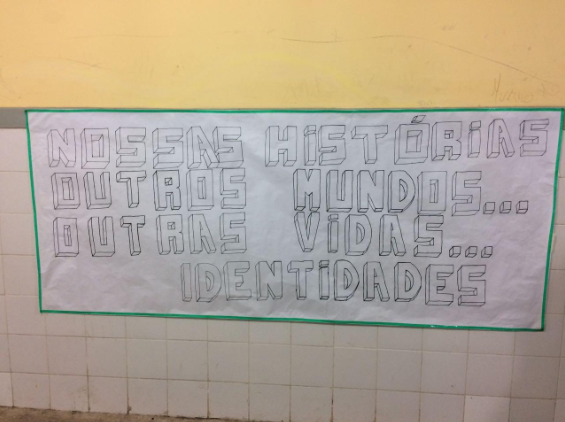 NOSSAS HISTÓRIAS
OUTROS MUNDOS...
OUTRAS VIDAS...
IDENTIDADES